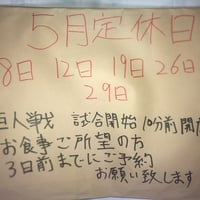 5月定休日
8日 12日 19日 26日
29日
巨人戦 試合開始 10分前開
お食事ご所望の方
3日前までにご予約
お願い致します